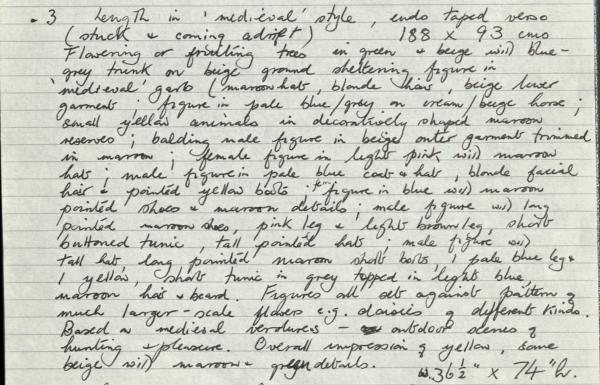 . 3 Length in 'medieval' style, ends taped verso
(stuck & coming adrift) 188 x 93 cms
Flowering or fruiting trees in green & beige with blue-
grey trunk on beige ground sheltering figure in
'medieval' garb (maroon hat, blonde hair, beige lower
garment; figure in pale blue/grey on cream/beige horse;
small yellow animals in decoratively shaped maroon
reserves; balding male figure in beige outer garment trimmed
in maroon; female figure in light pink with maroon
hat; male figure in pale blue coat & hat, blonde facial
hair & pointed yellow boots; figure in blue with maroon
pointed shoes & maroon details; male figure with long
pointed maroon shoes, pink leg & light brown leg, short
buttoned tunic, tall pointed hat; male figure with
tall hat long pointed maroon short boots, 1 pale blue leg &
1 yellow, short tunic in grey topped in light blue,
maroon hair & beard. Figures all set against pattern of
much larger-scale flowers e.g. daisies of different kinds.
Based on medieval verdures - outdoor scenes of
hunting & pleasure. Overall impression of yellow, some
beige with maroon & green details. w. 36 1/2" x 74" h.